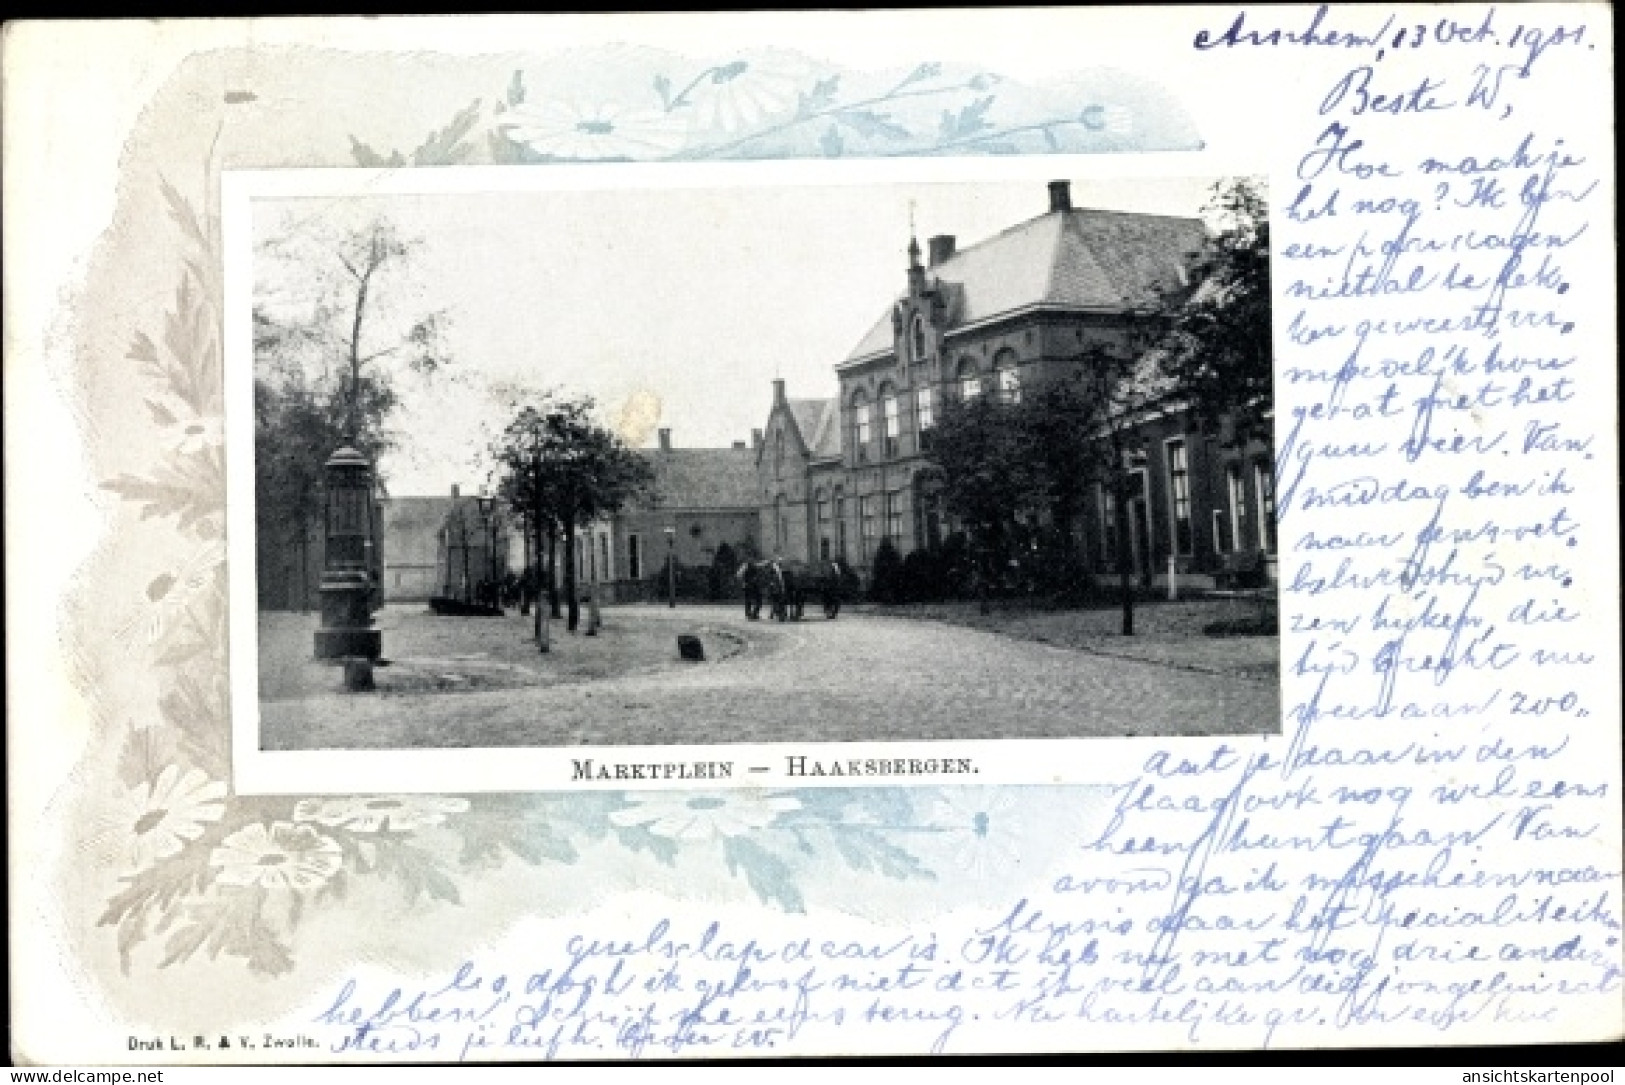 Arnhem, 13 Oct. 1901.
Beste W,
Hoe maak je
het nog? Ik ben
een paar dagen
niet al te lek-
ker geweest, ver-
moedelijk hou
met het
weer. Van-
middag ben ik
naar een voet-
balwedstrijd we-
zen kijken, die
tijd breekt nu
weer aan, zoo-
dat je daar in den
Haag ook nog wel eens
heen kunt gaan. Van
avond ga ik misschien naar
Musis daar het specialiteiten
gezelschap daar is. Ik heb nu met nog drie ander
les, doch ik geloof niet dat ik veel aan die jongelui zal
hebben. Schrijf me eens terug. Na hartelijke gr. en een kus
steeds je liefh. broer W.
MARKTPLEIN — HAAKSBERGEN.
Druk L. R. & V. Zwolle.
https://www.delcampe.net
ansichtskartenpool